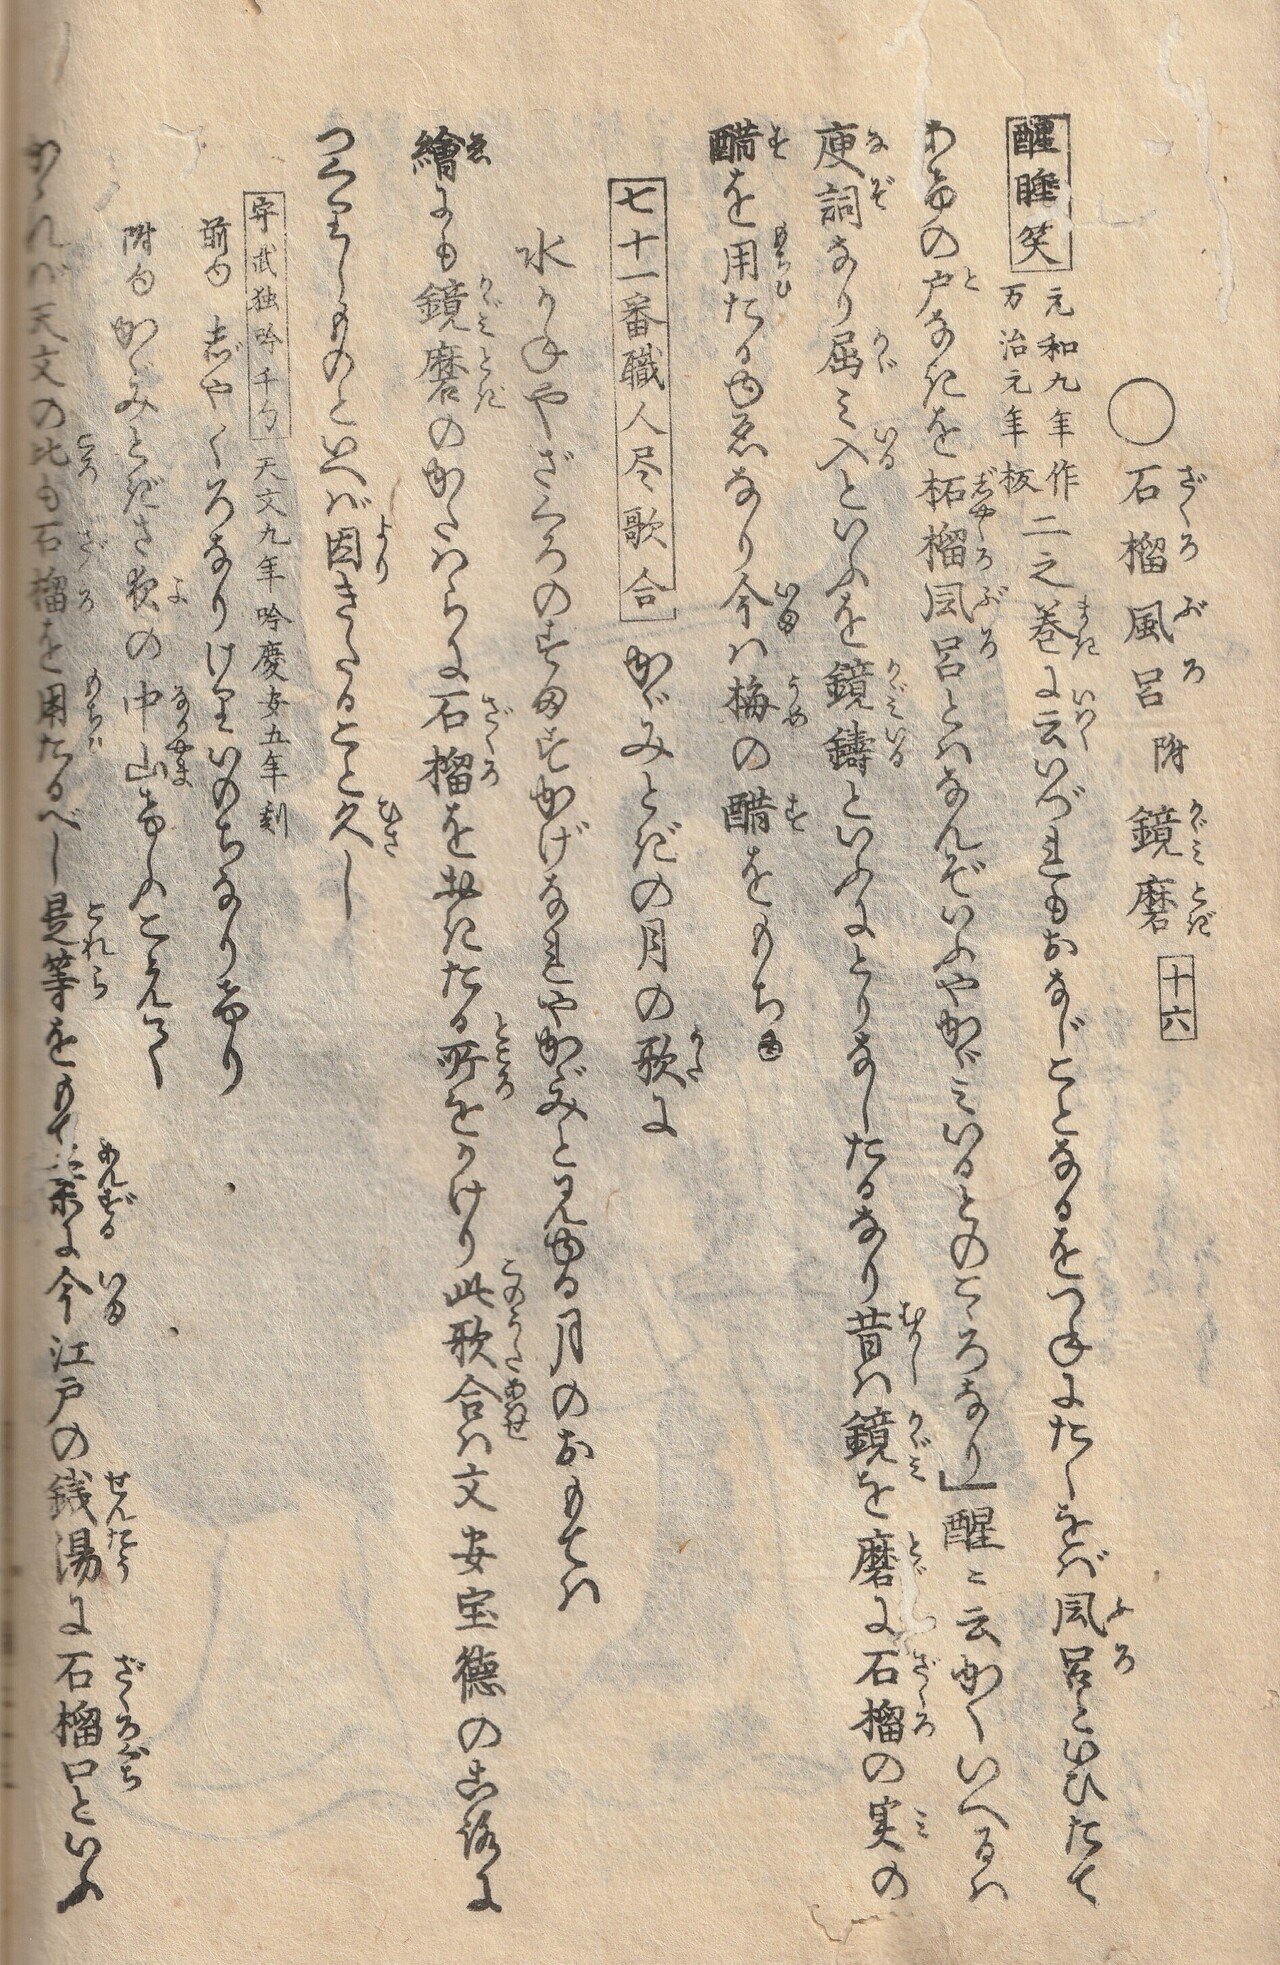 ○石榴風呂附鏡磨 十六
醒睡笑 元和九年作 万治元年板 二之巻に云いづれもおなじことなるをつねにたくをば風呂といひたて
あけの戸なきを柘榴風呂とはなんぞいふやかゞみいるとのこゝろなり」醒ニ云かくいへるハ
廋詞なり屈ミ入といふを鏡鋳といふにとりなしたるなり昔ハ鏡を磨に石榴の実の
醋を用たるゆゑなり今ハ梅の醋をもちゆ
七十一番職人尽歌合 かゞみとぎの月の歌に
水かねやざくろのすますかげなれやかゞみと見ゆる月のおもてハ
絵にも鏡磨のかたハらに石榴をおきたる所をかけり此歌合ハ文安宝徳のころに
つくりしものといへバ因きたること久し
守武独吟千句 天文九年吟慶安五年刻
前句 ざやくろなりけりいのちなりけり
附句 かゞみとぎさ夜の中山けふこえて
かゝれバ天文の比も石榴を用たるべし是等をもて案に今江戸の銭湯に石榴口といふ